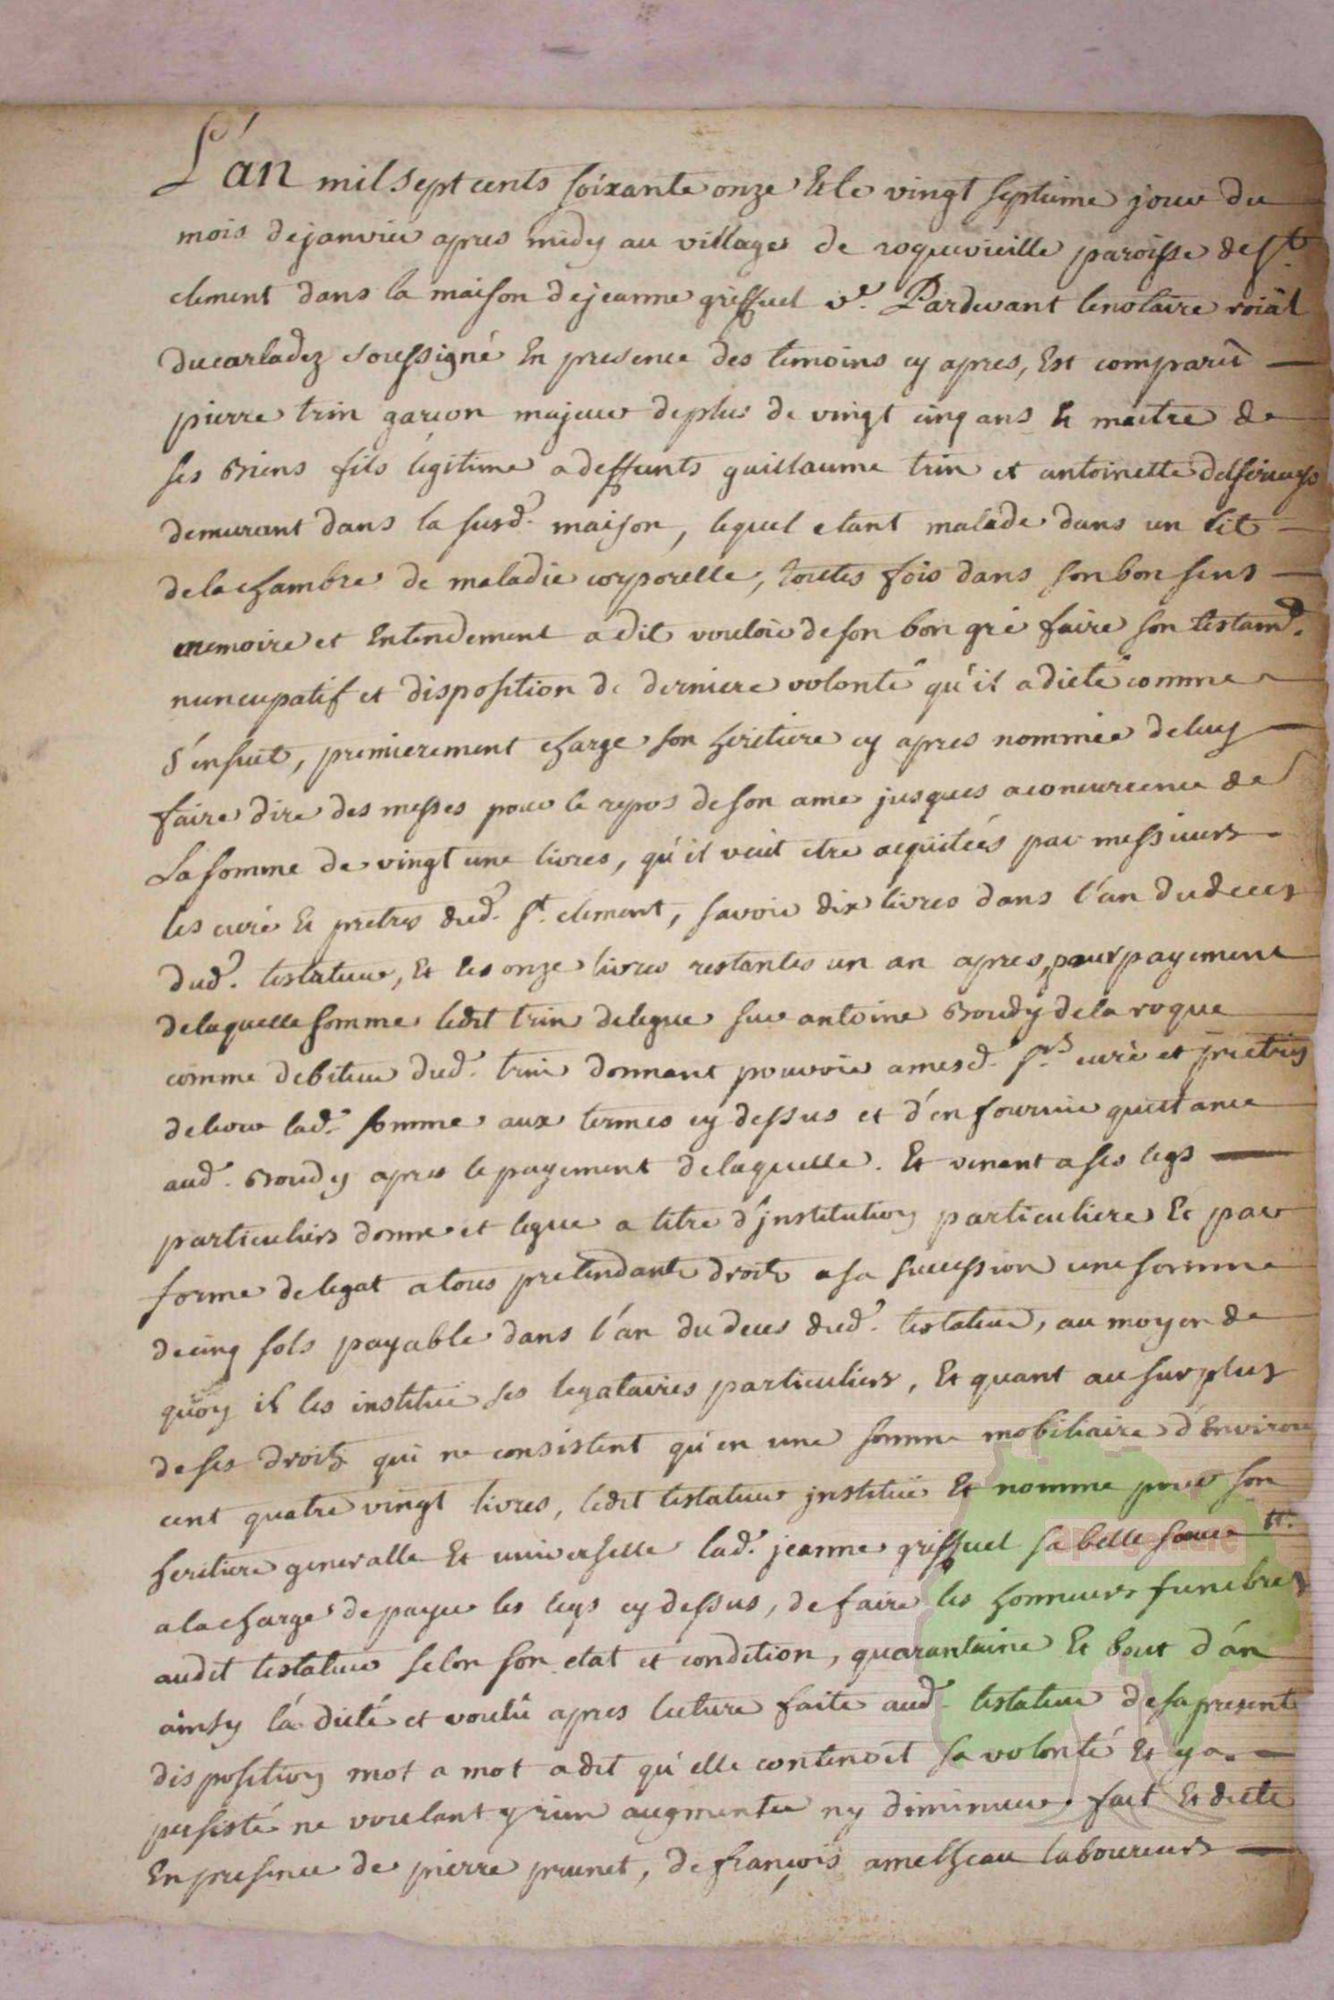 L'an mil sept cents soixante onze Et le vingt septieme jour du
mois de janvier apres midy au village de roquevieille paroisse de st.
clement dans la maison de jeanne griffuel ve. Pardevant le notaire roïal
du carladez soussigné En presence des temoins cy apres, Est comparû
pierre trin garcon majeur de plus de vingt cinq ans Et maitre de
ses Biens fils légitime a deffunts guillaume trin et antoinette
demurant dans la susd. maison, lequel etant malade dans un lit
de la chambre de maladie corporelle, toutes fois dans son bon sens
memoire et Entendement a dit vouloir de son bon gré faire son testamt.
nuncupatif et disposition de derniere volonté qu'il a dicté comme
s'ensuit, premierement charge son heritiere cy apres nommée de luy
faire dire des messes pour le repos de son ame jusques a concurrence de
La somme de vingt une livres, qu'il veut etre acquitées par messieurs
les curé Et pretres dud. st. clement, savoir dix livres dans l'an du deces
dud. testateur, Et les onze livres restantes un an apres, pour payement
de laquelle somme ledit trin delegue sur antoine Boudy de la roque
comme debiteur dud. trin donnant pouvoir a mesd. srs. curé et pretres
de lever lad. somme aux termes cy dessus et d'en fournir quittance
aud. Boudy apres le payement de laquelle. Et venant a ses legs
particuliers donne et legue a titre d'jnstitution particuliere Et par
forme de legat a tous pretendants droits a sa sucession une somme
de cinq sols payable dans l'an du deces dud. testateur, au moyen de
quoy il les institue ses legataires particuliers, Et quant au surplus
de ses droits qui ne consistent qu'en une somme mobiliaire d'Environ
cent quatre vingt livres, ledit testateur jnstitue Et nomme pour son
heritiere generalle Et universelle lad. jeanne griffuel sa belle soeur
a la charge de payer les legs cy dessus, de faire les honneurs funebres
audit testateur selon son etat et condition, quarantaine Et bout d'an
ainsy l'a dicté et voulû apres lecture faite aud. testateur de sa presente
disposition mot a mot a dit qu'elle contenoit sa volonté Et y a
persisté ne voulant y rien augmenter ny diminuer. fait Et dicté
En presence de pierre prunet, de françois laboureurs